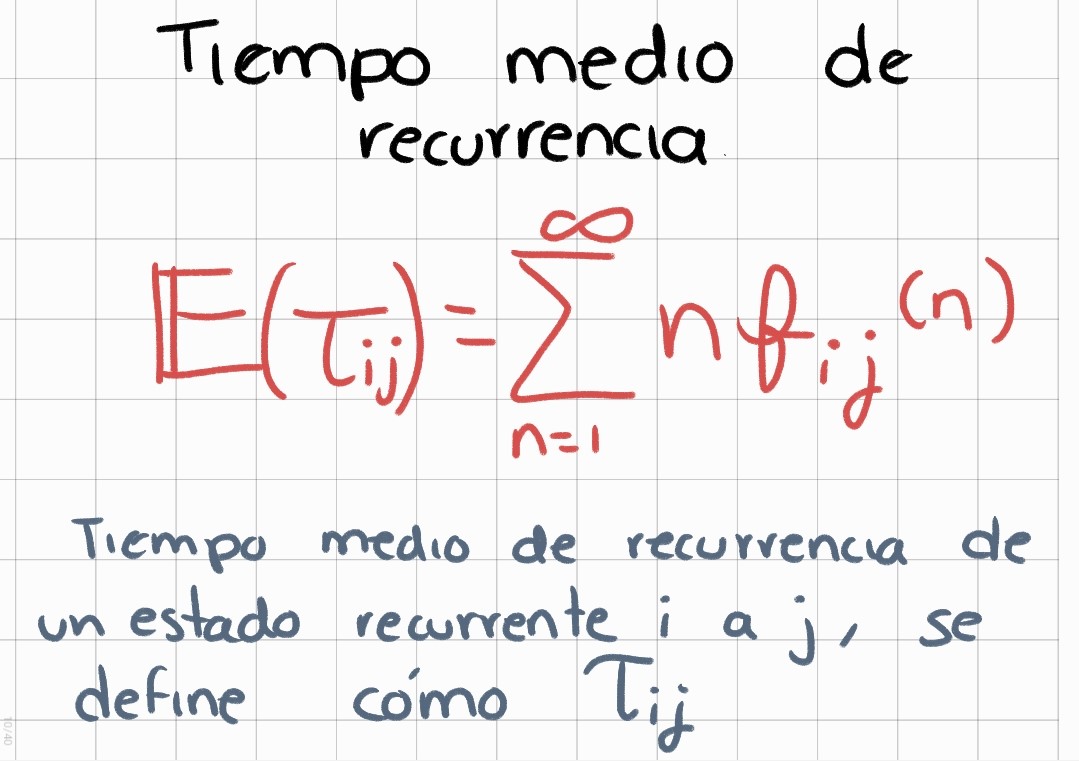 Tiempo medio de
recurrencia
𝔼(τᵢⱼ) = ∑_{n=1}^{∞} n fᵢⱼ⁽ⁿ⁾
Tiempo medio de recurrencia de
un estado recurrente i a j, se
define cómo τᵢⱼ
10/40